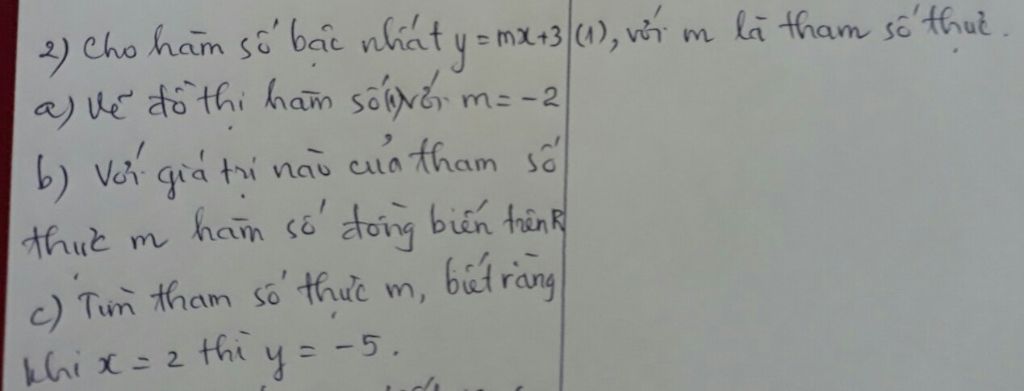 2) Cho hàm số bậc nhất y = mx+3 (1), với m là tham số thực.
a) Vẽ đồ thị hàm số (1) với m = -2
b) Với giá trị nào của tham số
thực m hàm số đồng biến trên R
c) Tìm tham số thực m, biết rằng
khi x = 2 thì y = -5.